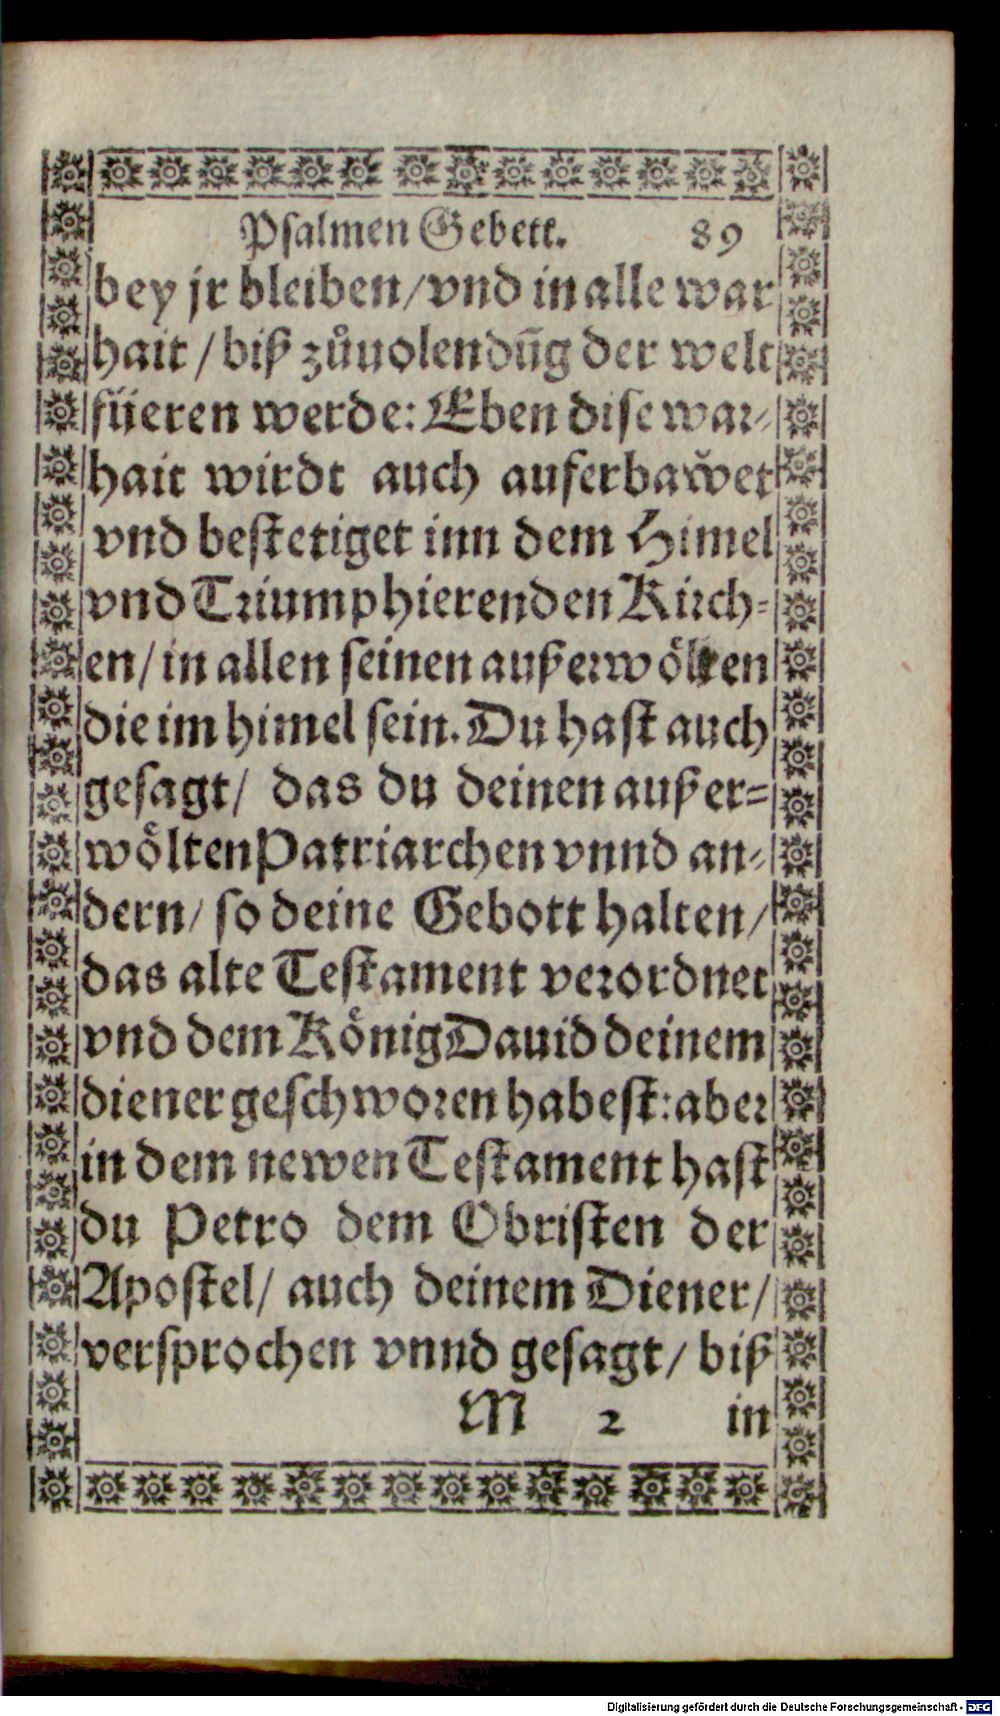 Psalmen Gebett. 89
bey jr bleiben/vnd in alle war
hait/biß zůuolendūg der welt
füeren werde: Eben dise war-
hait wirdt auch auferbawͤet
vnd bestetiget inn dem Himel
vnd Triumphierenden Kirch-
en/in allen seinen außerwölten
die im himel sein. Du hast auch
gesagt/ das du deinen außer-
wölten Patriarchen vnnd an-
dern/ so deine Gebott halten/
das alte Testament verordnet
vnd dem König Dauid deinem
diener geschworen habest: aber
in dem newen Testament hast
du Petro dem Obristen der
Apostel/ auch deinem Diener/
versprochen vnnd gesagt/ biß
M 2 in
Digitalisierung gefördert durch die Deutsche Forschungsgemeinschaft - DFG